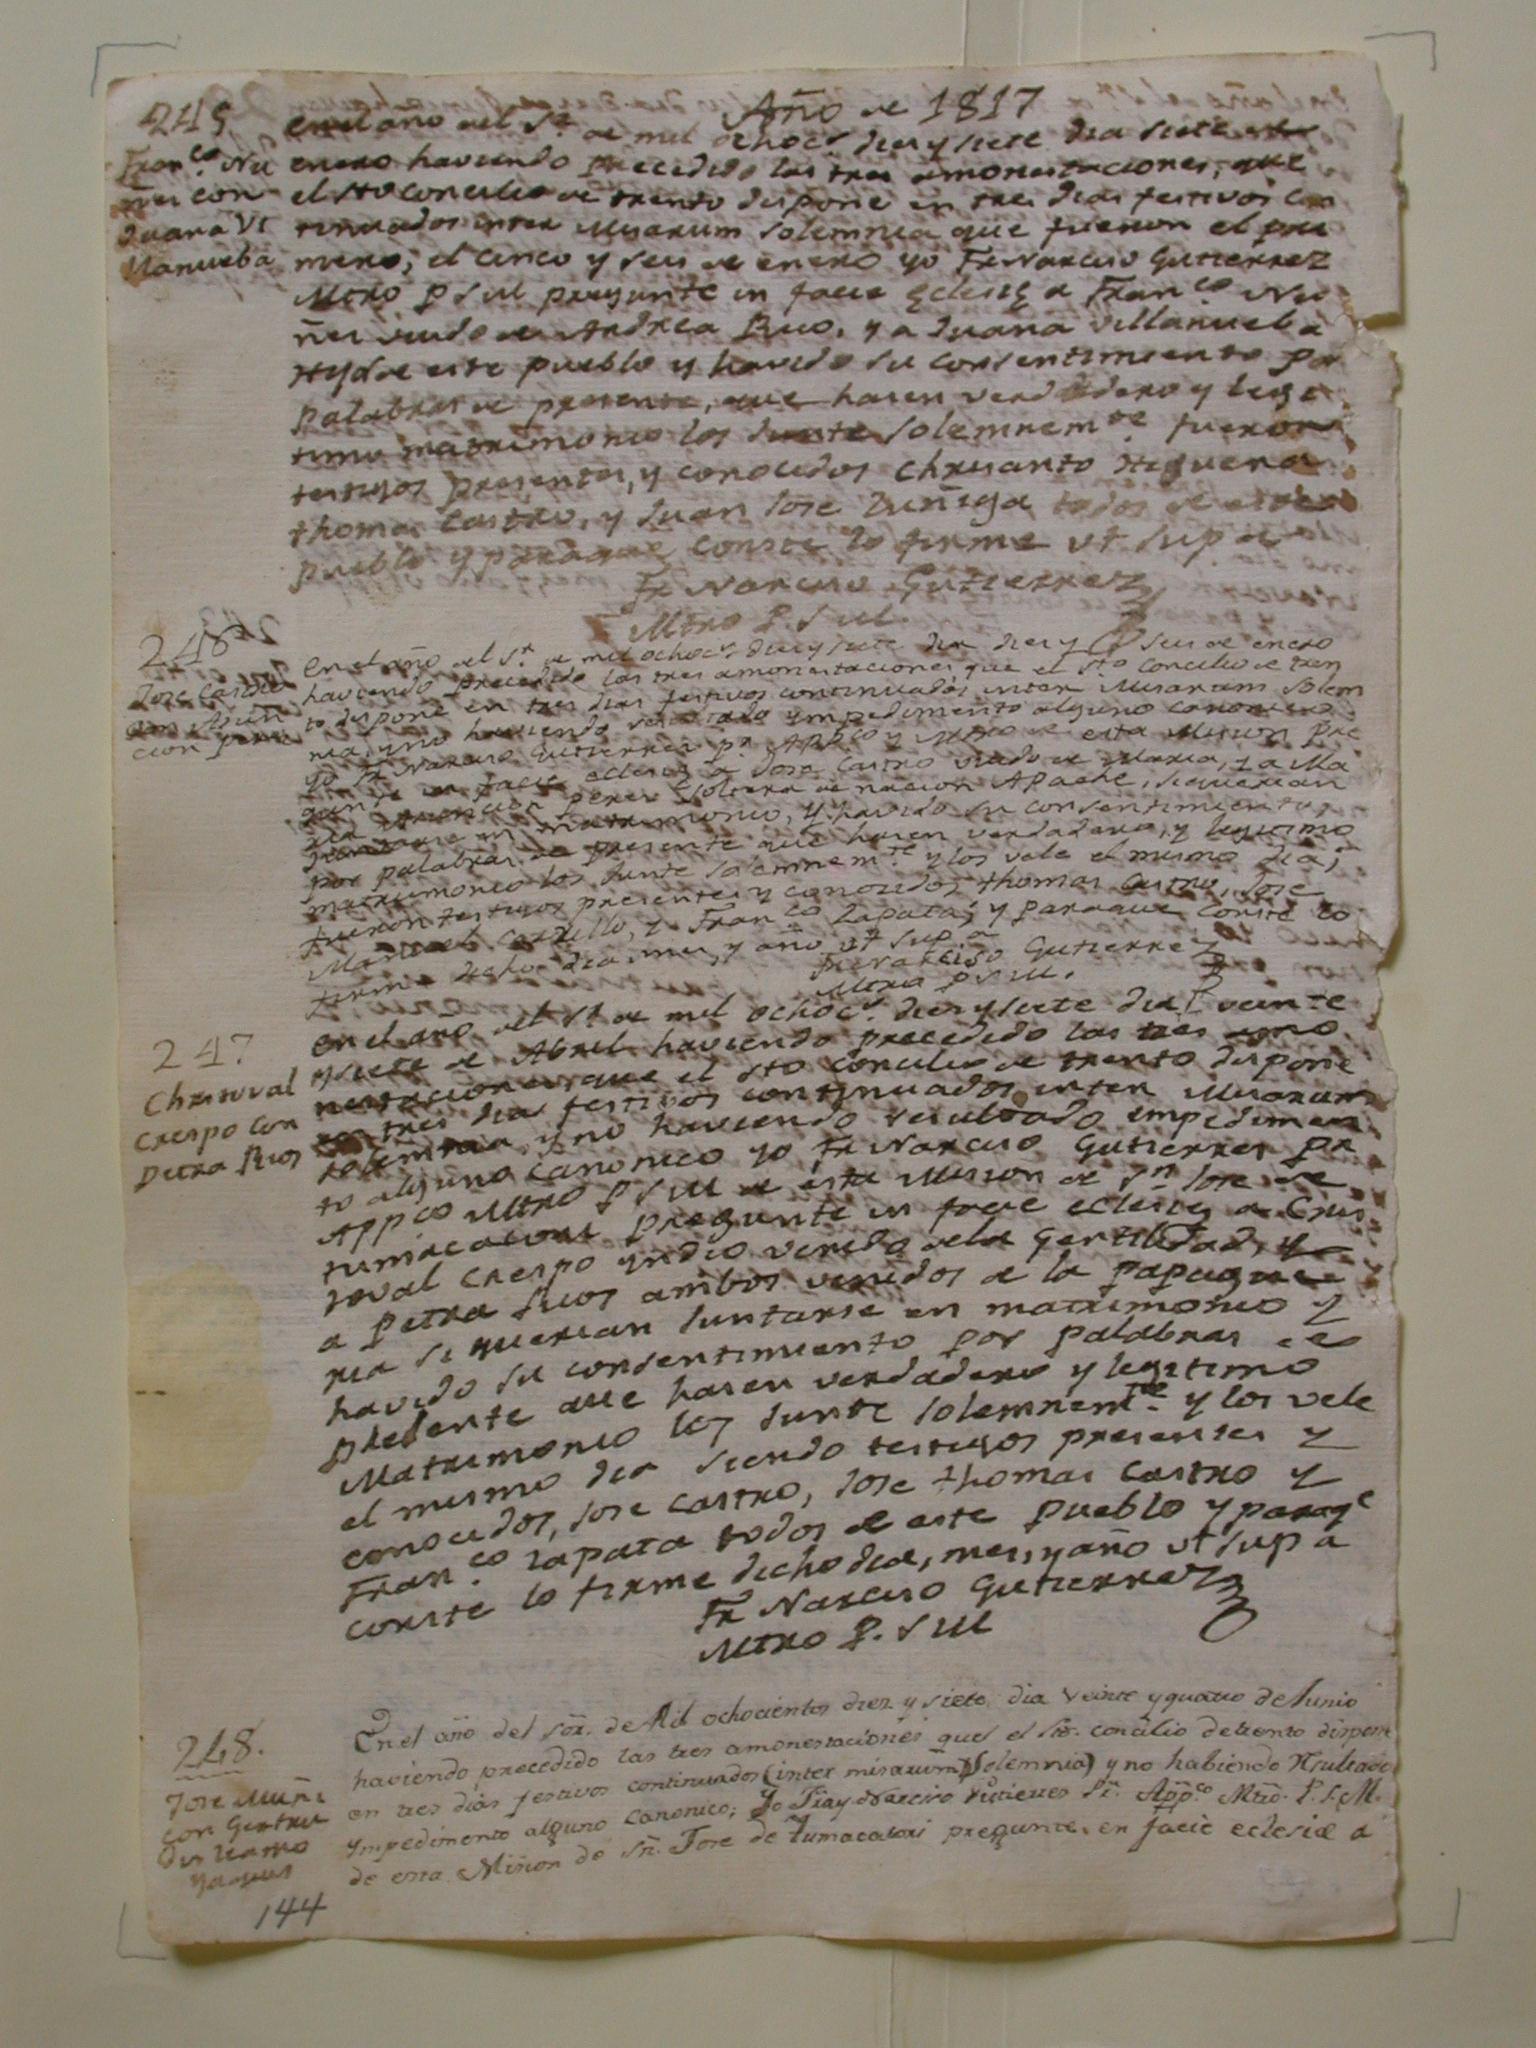 Año de 1817
245
Fran.co Nu
ñes con
Juana Vi
llanueba
en el año del S.r de mil ochoc.s dies y siete dia siete de
enero haviendo precedido las tres amonestaciones, que
el Sto Concilio de trento dispone en tres dias festivos con
tinuados inter Missarum solemnia que fueron el pri
mero, el cinco y seis de enero yo Fr Narciso Gutierrez
Mtro P S M pregunte in facie eclesię a Fran.co Nu
ñes viudo de Andrea Rio, y a Juana Villanueba
Hija de este pueblo y havido su consentimiento por
palabras de presente, que hasen verdadero y legi
timo matrimonio los Junte solemnem.te fueron
testigos presentes, y conocidos Chrisanto Higuera
thomas Castro, y Juan Jose Zuñiga todos de este
pueblo y paraque conste lo firme ut supa
Fr Narciso Gutierrez
Mtro P. S M.
246
Jose Castro
con Asun
cion peres
en el año del S.r de mil ochoc.s dies y siete dia dies y seis de enero
haviendo precedido las tres amonestaciones que el S.to Concilio de tren
to dispone en tres dias festivos continuados inter Misarum solem
nia, y no haviendo resultado ympedimento alguno canonico
yo Fr Narciso Gutierres p.r App.co y Mtro de esta Mision pre
gunte in facie eclesię a Jose Castro viudo de Maria, y a Ma
ria Asuncion peres soltera de nacion Apache, si querian
juntarse en matrimonio, y havido su consentimiento,
por palabras de presente que hasen verdadero, y legitimo
matrimonio los Junte solemnem.te y los vele el mismo dia;
fueron testigos presentes y conocidos thomas Castro, Jose
Manuel Carrillo, y Fran.co Zapata; y paraque conste lo
firme dicho dia mes, y año ut supa
Fr Narciso Gutierrez
Mtro P S M.
247
Christoval
Crespo con
Petra Rios
en el año del S.r de mil ochoc.s dies y siete dia veinte
y siete de Abril haviendo precedido las tres amo
nestaciones que el Sto Concilio de trento dispone
en tres dias festivos continuados inter Misarum
solemnia, y no haviendo resultado impedimen
to alguno canonico yo Fr Narciso Gutierres pr
Appco Mtro P S M de esta Mision de S.n Jose de
tumacacori pregunte in facie eclesię a Cris
toval Crespo yndio venido de la Gentilidad, y
a Petra Rios ambos venidos de la papague
ria si querian Juntarse en matrimonio y
havido su consentimiento por palabras de
presente que hasen verdadero y legitimo
Matrimonio los Junte solemnem.te y los vele
el mismo dia siendo testigos presentes y
conocidos, Jose Castro, Jose thomas Castro y
Fran.co Zapata todos de este pueblo y paraq.e
conste lo firme dicho dia, mes, y año ut supa
Fr Narciso Gutierrez
Mtro P. S M
248.
Jose Muñi
con Gertru
dis
En el año del Sõr. de Mil ochocientos diez y siete dia veinte y quatro de Junio
haviendo precedido las tres amonestaciones que el Sto. concilio de trento dispone
en tres dias festivos continuados (inter misarum solemnia) y no habiendo resultado
ympedimento alguno canonico; Yo Fray Narciso Gutierres Pr. App.co Mtro. P. S. M.
de esta Mision de Sn. Jose de Tumacacori pregunte, en facie eclesiæ a
144